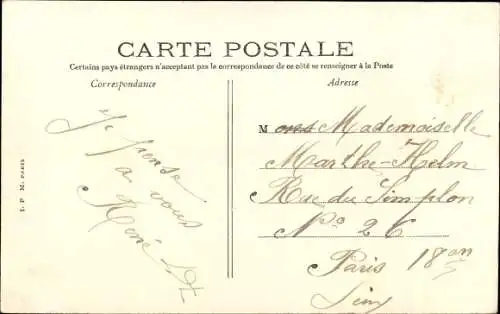 CARTE POSTALE
Certains pays étrangers n'acceptant pas la correspondance de ce côté se renseigner à la Poste
Correspondance
Adresse
Je pense
a vous
René
M Mademoiselle
Marthe Helm
Rue du Simplon
No 26
Paris 18en
I. P. M. PARIS